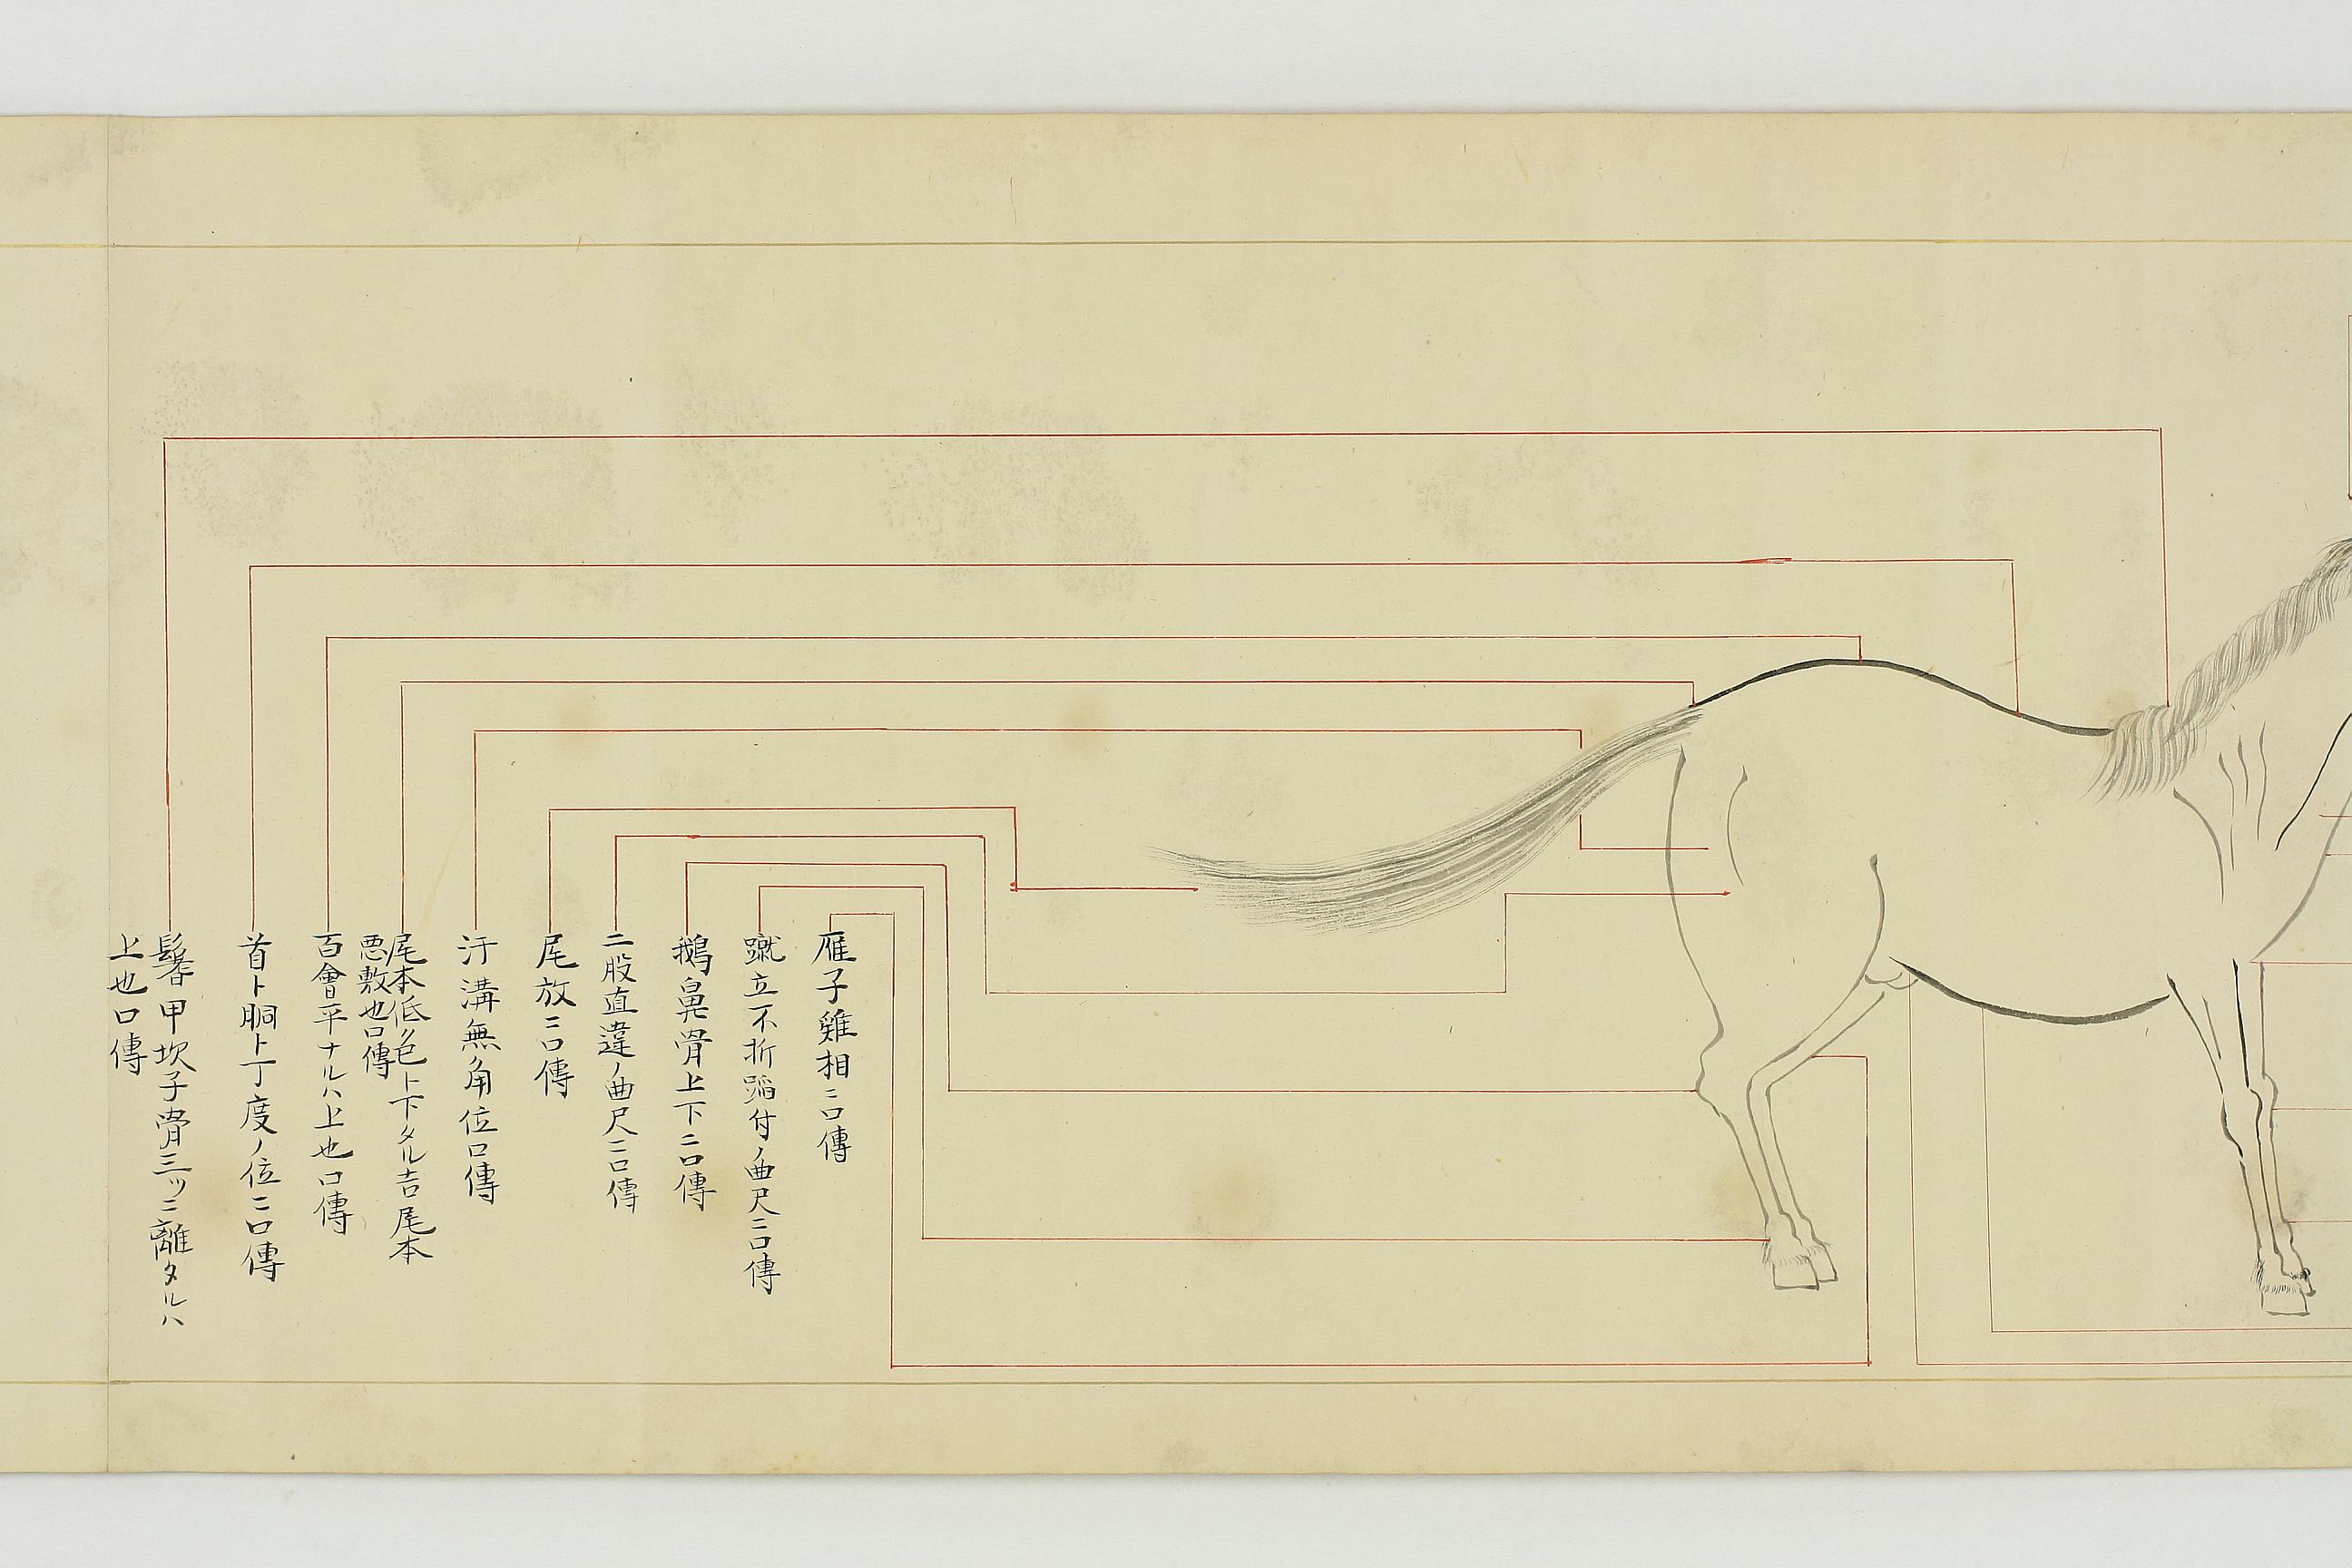 雁子雞相ニ口傳
蹴立不折蹈付ノ曲尺ニ口傳
鵝鼻骨上下ニ口傳
二股直違ノ曲尺ニ口傳
尾放ニ口傳
汗溝無角位口傳
尾本低ク邑ト下タル吉尾本
悪敷也口傳
百會平ナルハ上也口傳
首ト胴ト丁度ノ位ニ口傳
鬠甲坎子骨三ツニ離タルハ
上也口傳